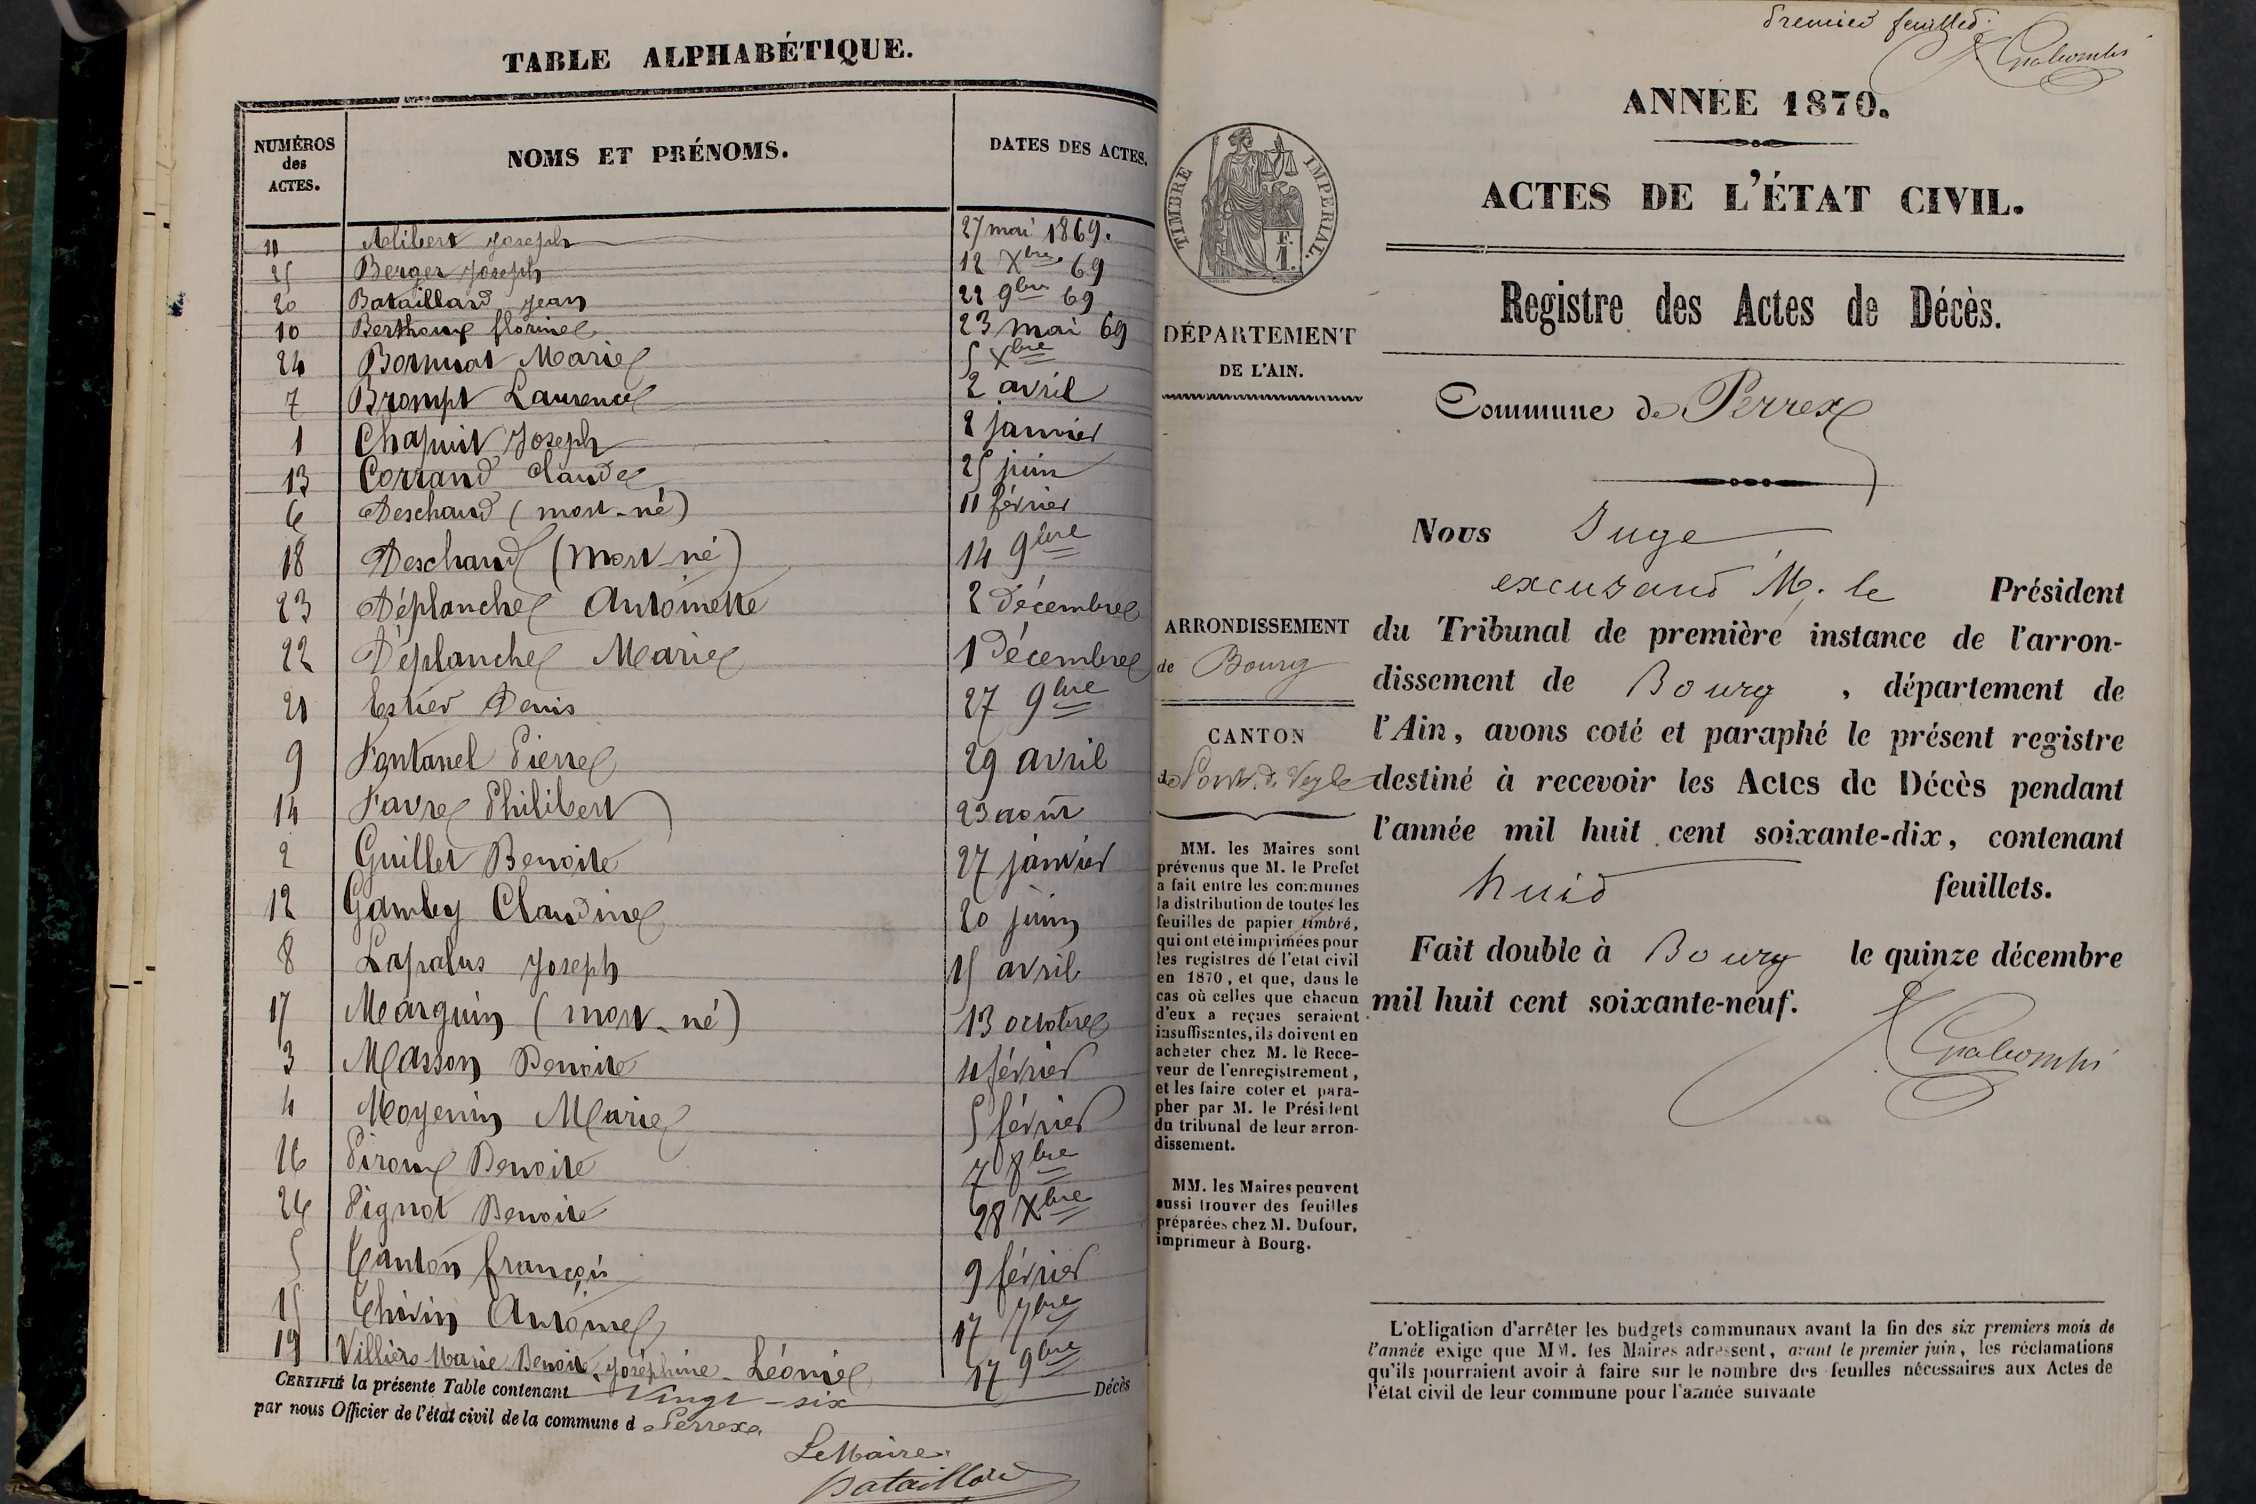 TABLE ALPHABÉTIQUE.
NUMÉROS des ACTES. NOMS ET PRÉNOMS. DATES DES ACTES.
11 Alibert Joseph 27 mai 1869.
25 Berger Joseph 12 Xbre 69
20 Bataillard Jean 22 9bre 69
10 Berthoux florine 23 mai 69
24 Bornuat Marie 5 Xbre
7 Brompt Laurence 2 avril
1 Chapuit Joseph 2 janvier
13 Corrand Claude 25 juin
6 Deschaud (mort-né) 11 février
18 Deschaud (mort-né) 14 9bre
23 Déplanche Antoinette 2 décembre
22 Déplanche Marie 1 Décembre
21 Estier Denis 27 9bre
9 Fontanel Pierre 29 avril
14 Favre Philibert 23 août
2 Guillet Benoite 27 janvier
12 Gambey Claudine 20 juin
8 Lapalus Joseph 15 avril
17 Marguin (mort-né) 13 octobre
3 Masson Benoite 4 février
4 Moyenin Marie 5 février
16 Piroux Benoite 7 8bre
26 Pignot Benoite 28 Xbre
5 Tanton françois 9 février
15 Thivin Antoine 17 7bre
19 Villiers Marie Benoite Joséphine Léonie 17 9bre
CERTIFIÉ la présente Table contenant Vingt-six Décès
par nous Officier de l'état civil de la commune de Perrex
Le Maire
Bataillard
Premier feuillet.
ANNÉE 1870.
ACTES DE L'ÉTAT CIVIL.
TIMBRE IMPÉRIAL.
F.
1.
Registre des Actes de Décès.
DÉPARTEMENT
DE L'AIN.
Commune de Perrex
Nous Juge
excusant M. le Président
du Tribunal de première instance de l'arron-
dissement de Bourg, département de
l'Ain, avons coté et paraphé le présent registre
destiné à recevoir les Actes de Décès pendant
l'année mil huit cent soixante-dix, contenant
huit feuillets.
Fait double à Bourg le quinze décembre
mil huit cent soixante-neuf.
ARRONDISSEMENT
de Bourg
CANTON
de Pont-de-Veyle
MM. les Maires sont
prévenus que M. le Prefet
a fait entre les communes
la distribution de toutes les
feuilles de papier timbré,
qui ont été imprimées pour
les registres de l'état civil
en 1870, et que, dans le
cas où celles que chacun
d'eux a reçues seraient
insuffisantes, ils doivent en
acheter chez M. le Rece-
veur de l'enregistrement,
et les faire coter et para-
pher par M. le Président
du tribunal de leur arron-
dissement.
MM. les Maires peuvent
aussi trouver des feuilles
préparées chez M. Dufour,
imprimeur à Bourg.
L'obligation d'arrêter les budgets communaux avant la fin des six premiers mois de
l'année exige que MM. les Maires adressent, avant le premier juin, les réclamations
qu'ils pourraient avoir à faire sur le nombre des feuilles nécessaires aux Actes de
l'état civil de leur commune pour l'année suivante